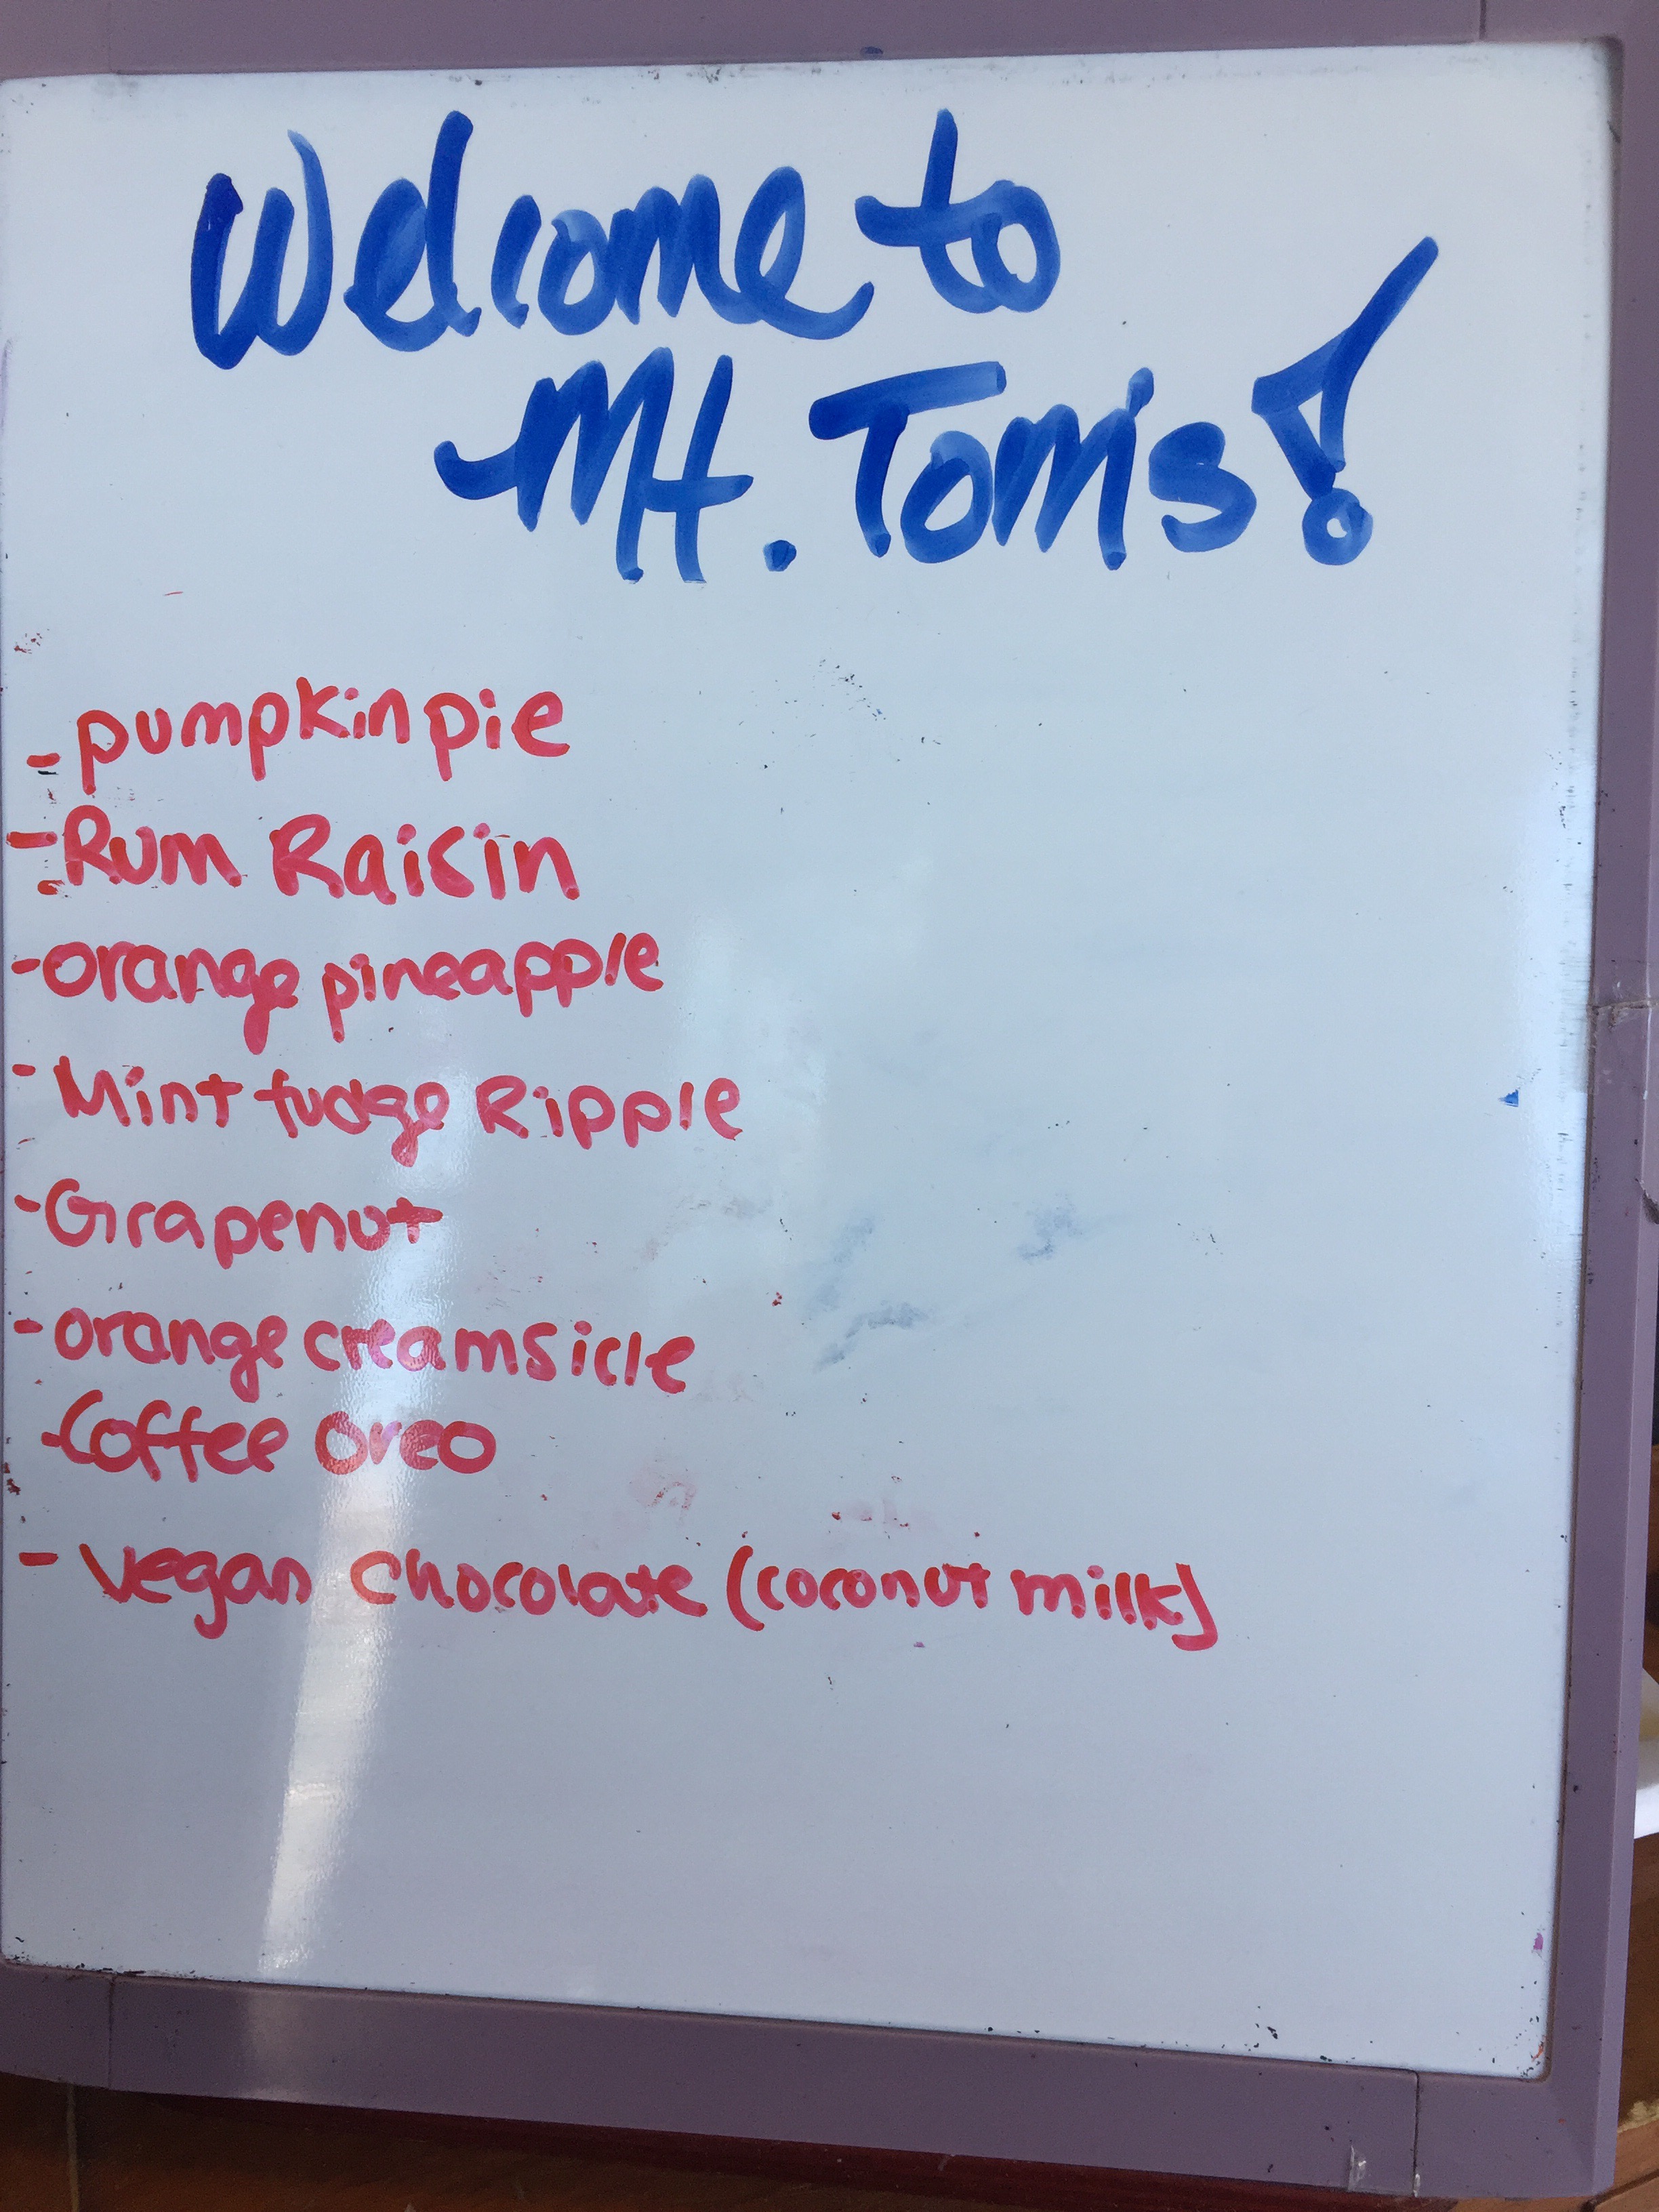 Welcome to
Mt. Tom's!
- pumpkin pie
- Rum Raisin
- orange pineapple
- Mint fudge Ripple
- Grapenut
- orange creamsicle
- Coffee oreo
- vegan chocolate (coconut milk)